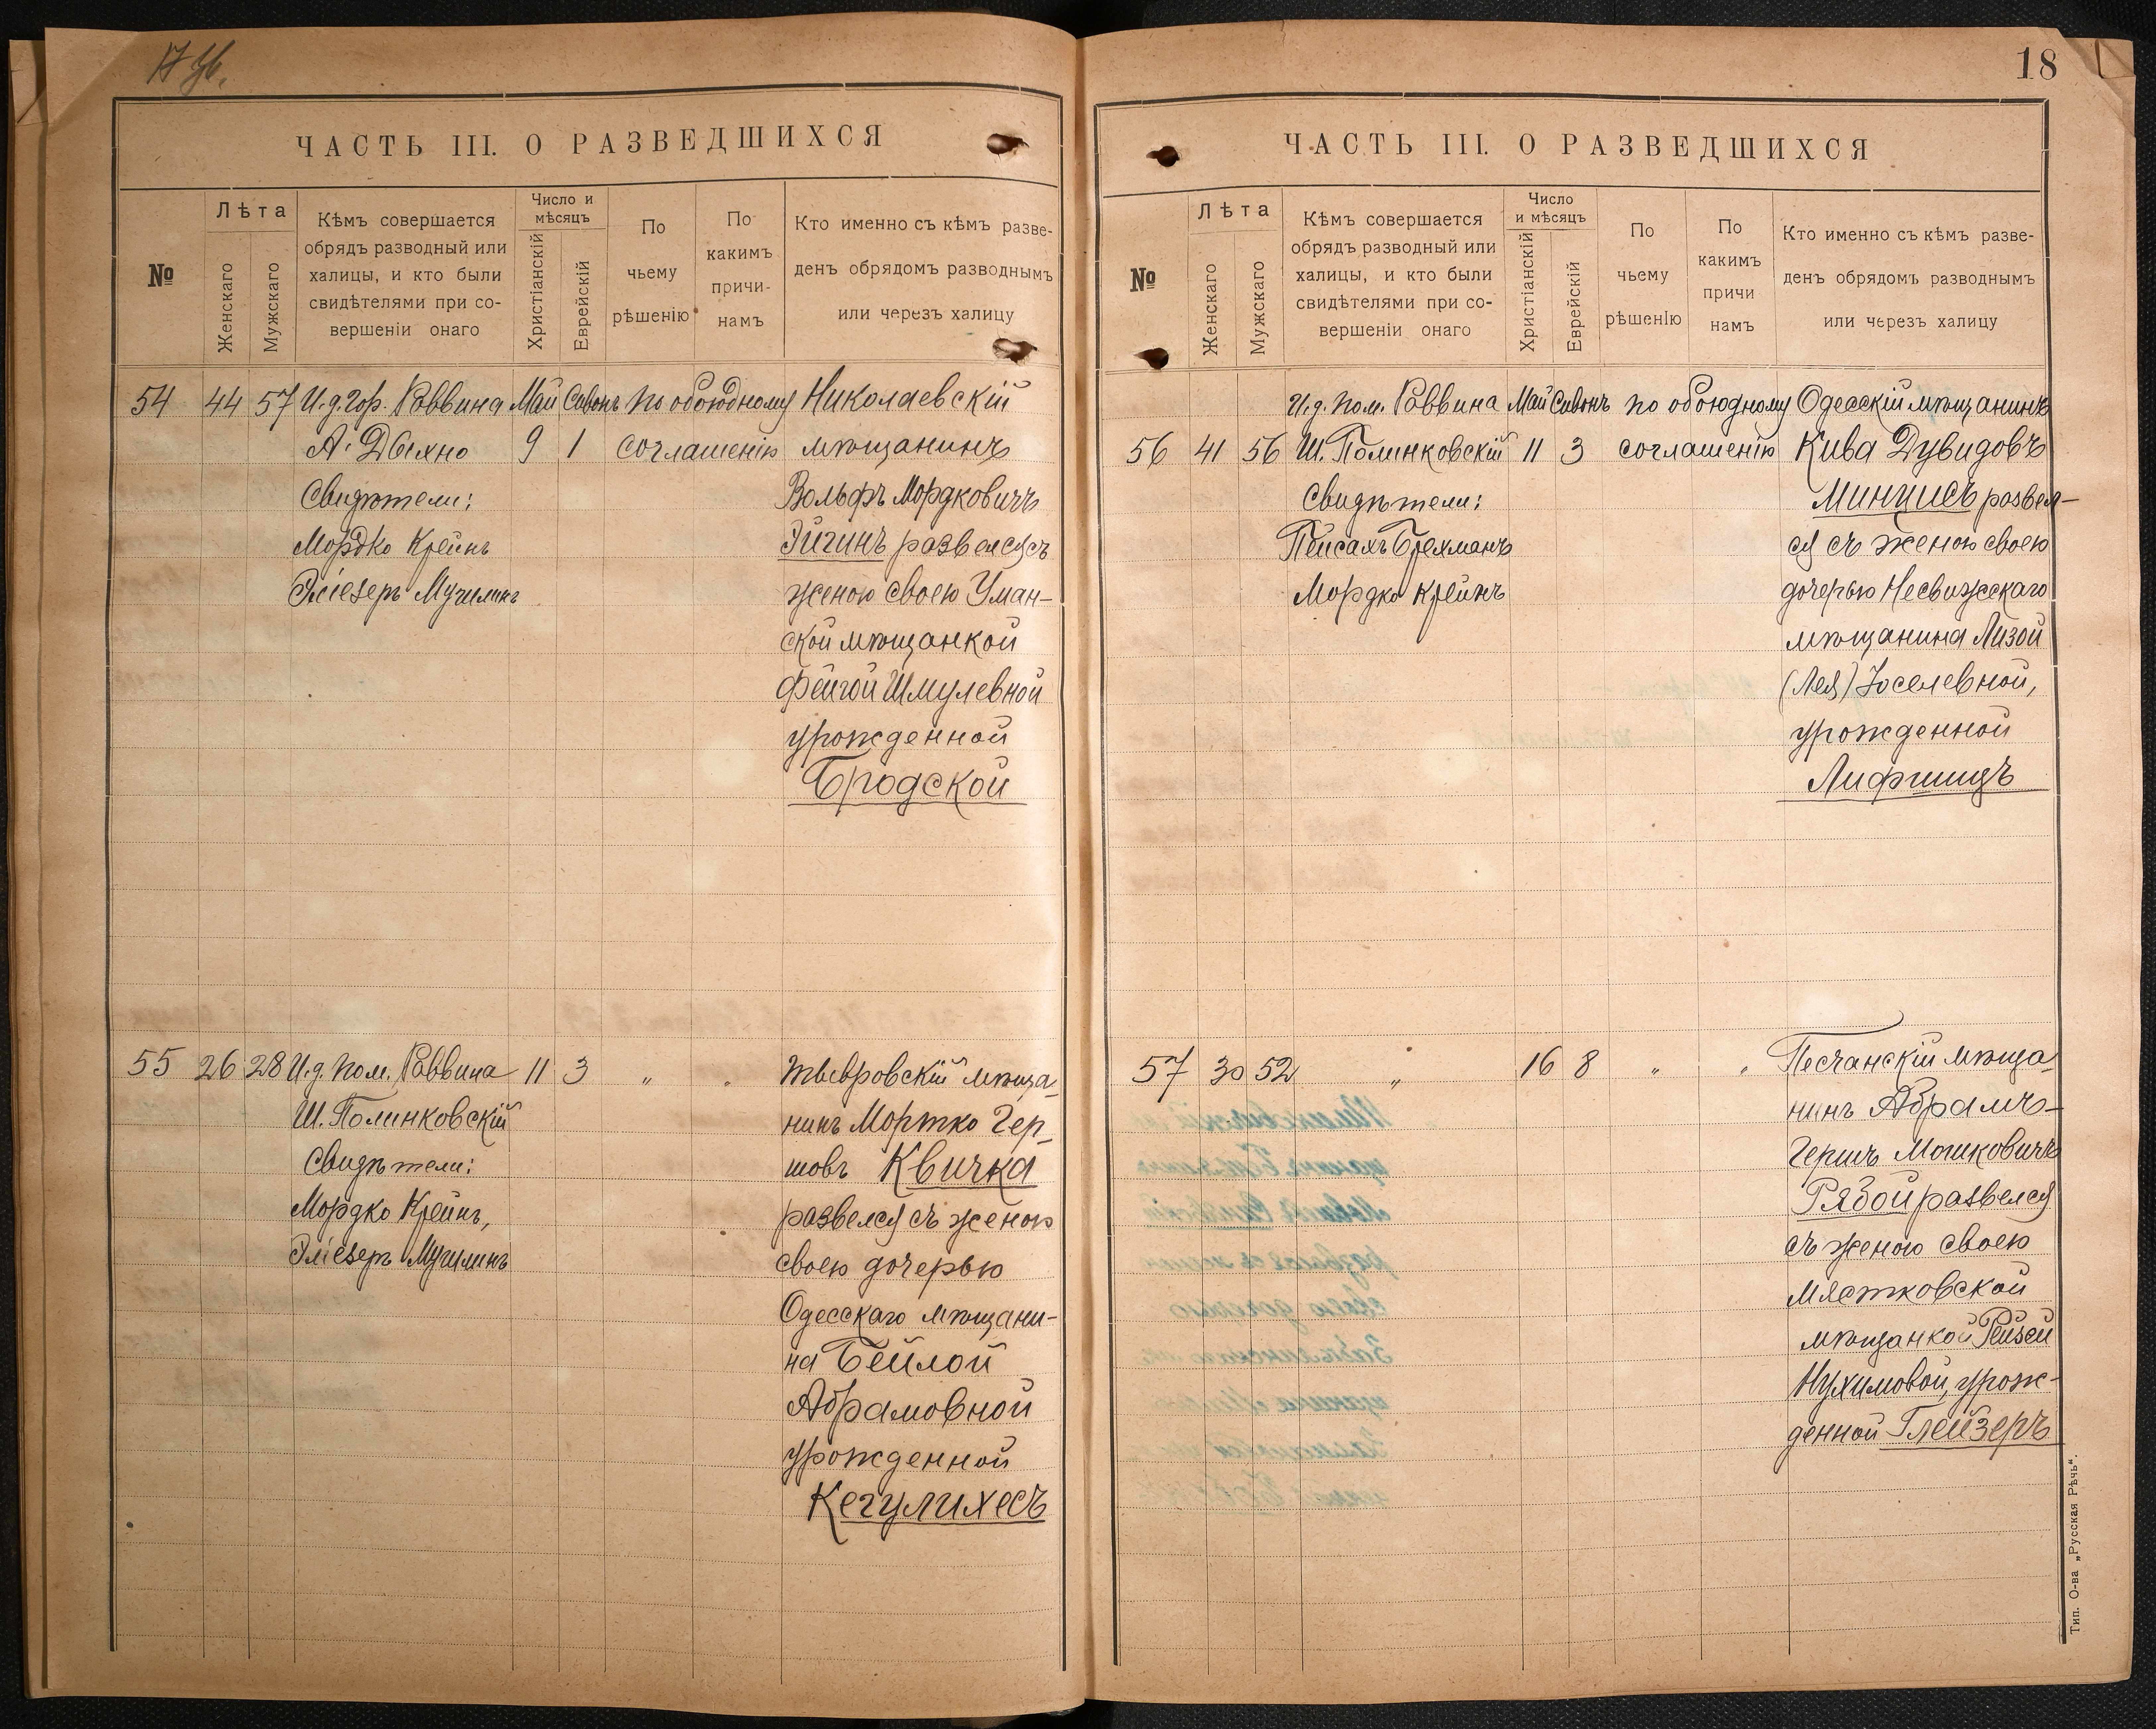 18
ЧАСТЬ III. О РАЗВЕДШИХСЯ
№
Лѣта
Женскаго
Мужскаго
Кѣмъ совершается
обрядъ разводный или
халицы, и кто были
свидѣтелями при со-
вершеніи онаго
Число и
мѣсяцъ
Христіанскій
Еврейскій
По
чьему
рѣшенію
По
какимъ
причи-
намъ
Кто именно съ кѣмъ разве-
денъ обрядомъ разводнымъ
или черезъ халицу
54 44 57 И.д. Гор. Раввина Май Сивонъ по обоюдному Николаевскій
А. Дыхно 9 1 соглашенію мѣщанинъ
Свидѣтели: Вольфъ Мордковичъ
Мордко Крейнъ Эйгинъ развелся съ
Эліезеръ Мучилинъ женою своею Уман-
ской мѣщанкой
Фейгой Шмулевной
урожденной
Бродской
55 26 28 И.д. пом. Раввина 11 3 „ „ Жывровскій мѣща-
Ш. Полинковскій нинъ Мортко Гер-
Свидѣтели: шовъ Квичка
Мордко Крейнъ, развелся съ женою
Эліезеръ Мучилинъ своею дочерью
Одесскаго мѣщани-
на Бейлой
Абрамовной
урожденной
Кегулихесъ
ЧАСТЬ III. О РАЗВЕДШИХСЯ
№
Лѣта
Женскаго
Мужскаго
Кѣмъ совершается
обрядъ разводный или
халицы, и кто были
свидѣтелями при со-
вершеніи онаго
Число
и мѣсяцъ
Христіанскій
Еврейскій
По
чьему
рѣшенію
По
какимъ
причи
намъ
Кто именно съ кѣмъ разве-
денъ обрядомъ разводнымъ
или черезъ халицу
И.д. пом. Раввина Май Сивонъ по обоюдному Одесскій мѣщанинъ
56 41 56 Ш. Полинковскій 11 3 соглашенію Кива Дувидовъ
Свидѣтели: Минцисъ развел-
Пейсахъ Брехманъ ся съ женою своею
Мордко Крейнъ дочерью Несвижскаго
мѣщанина Лизой
(Лея) Іоселевной,
урожденной
Лифшицъ
57 30 52 „ 16 8 „ „ Песчанскій мѣща-
нинъ Абрамъ-
Гершъ Мошковичъ
Рябой развелся
съ женою своею
Мястковской
мѣщанкой Рейзей
Нухимовой, урож-
денной Глейзеръ
Тип. О-ва „Русская Рѣчь“.